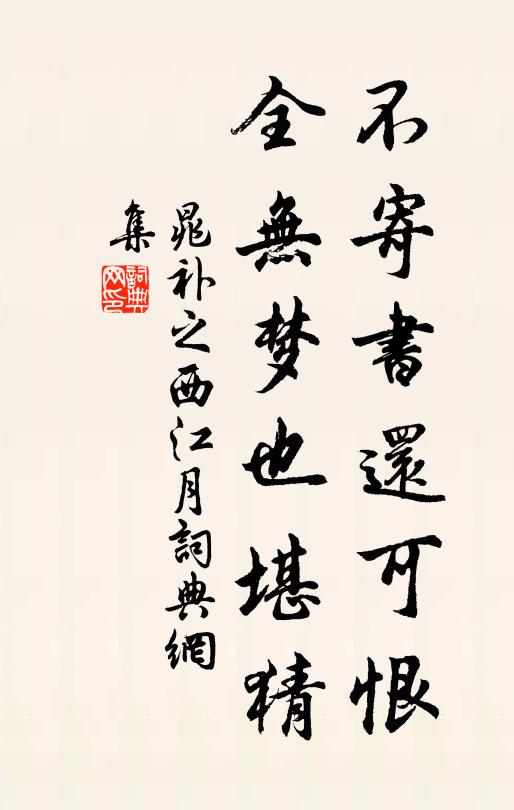 不寄書還可恨
全無梦也堪猜
晁补之西江月詞典網
集
詞典網印